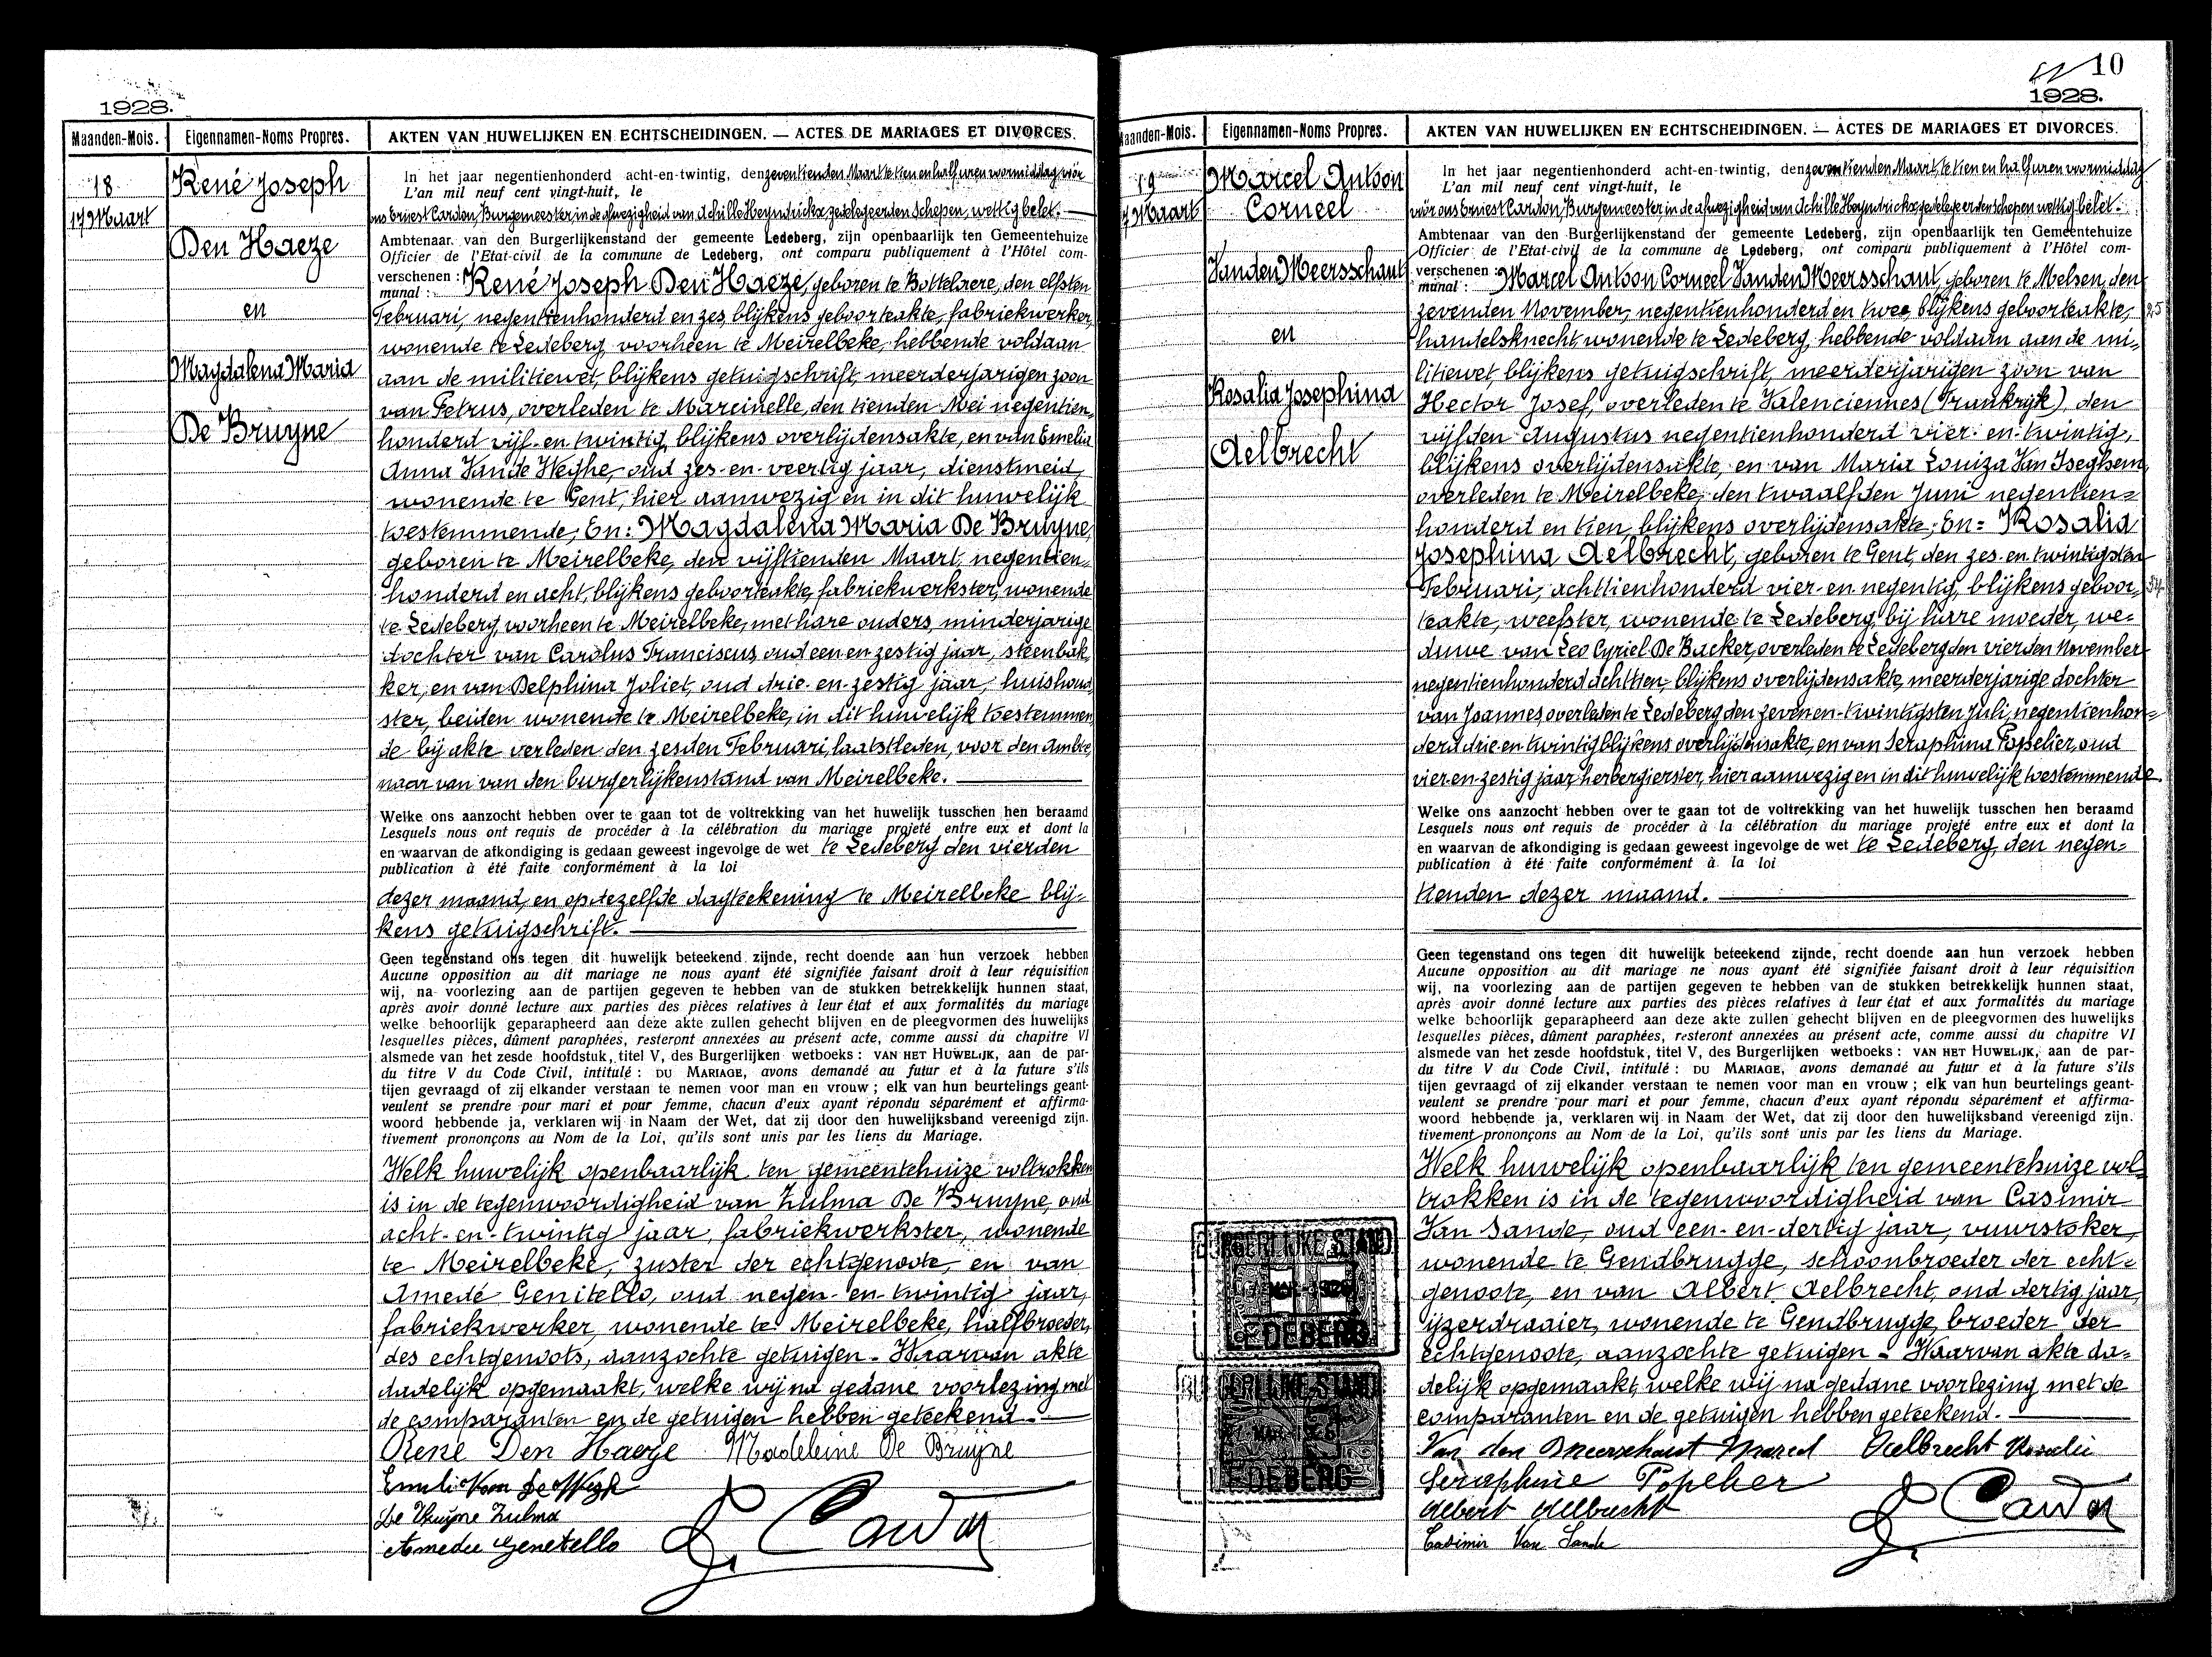 1928.
Maanden-Mois. Eigennamen-Noms Propres. AKTEN VAN HUWELIJKEN EN ECHTSCHEIDINGEN. — ACTES DE MARIAGES ET DIVORCES.
18
17 Maart
René Joseph
Den Haeze
en
Magdalena Maria
De Bruyne
In het jaar negentienhonderd acht-en-twintig, den zeventienden Maart te tien en half uren voormiddag vóór
L'an mil neuf cent vingt-huit, le
ons Ernest Cardon, Burgemeester, in de afwezigheid van Achille Heyndrickx, gedelegeerden Schepen, wettig belet. —
Ambtenaar van den Burgerlijkenstand der gemeente Ledeberg, zijn openbaarlijk ten Gemeentehuize
Officier de l'Etat-civil de la commune de Ledeberg, ont comparu publiquement à l'Hôtel com-
verschenen : René Joseph Den Haeze, geboren te Bottelaere, den elfsten
munal :
Februari, negentienhonderd en zes, blijkens geboorteakte, fabriekwerker,
wonende te Ledeberg, voorheen te Meirelbeke, hebbende voldaan
aan de militiewet, blijkens getuigschrift, meerderjarigen zoon
van Petrus, overleden te Marcinelle, den tienden Mei negentien-
honderd vijf-en-twintig, blijkens overlijdensakte, en van Emelia
Anna Van de Weghe, oud zes-en-veertig jaar, dienstmeid,
wonende te Gent, hier aanwezig en in dit huwelijk
toestemmende; En: Magdalena Maria De Bruyne,
geboren te Meirelbeke, den vijftienden Maart, negentien-
honderd en acht, blijkens geboorteakte, fabriekwerkster, wonende
te Ledeberg, voorheen te Meirelbeke, met hare ouders, minderjarige
dochter van Carolus Franciscus, oud een en zestig jaar, steenbak-
ker, en van Delphina Joliet, oud drie-en-zestig jaar, huishoud-
ster, beiden wonende te Meirelbeke, in dit huwelijk toestemmen-
de bij akte verleden den zesden Februari, laatstleden, voor den ambte-
naar van van den burgerlijkenstand van Meirelbeke. —
Welke ons aanzocht hebben over te gaan tot de voltrekking van het huwelijk tusschen hen beraamd
Lesquels nous ont requis de procéder à la célébration du mariage projeté entre eux et dont la
en waarvan de afkondiging is gedaan geweest ingevolge de wet te Ledeberg den vierden
publication à été faite conformément à la loi
dezer maand, en op dezelfde dagteekening te Meirelbeke blij-
kens getuigschrift. —
Geen tegenstand ons tegen dit huwelijk beteekend zijnde, recht doende aan hun verzoek hebben
Aucune opposition au dit mariage ne nous ayant été signifiée faisant droit à leur réquisition
wij, na voorlezing aan de partijen gegeven te hebben van de stukken betrekkelijk hunnen staat,
après avoir donné lecture aux parties des pièces relatives à leur état et aux formalités du mariage
welke behoorlijk geparapheerd aan deze akte zullen gehecht blijven en de pleegvormen des huwelijks
lesquelles pièces, dûment paraphées, resteront annexées au présent acte, comme aussi du chapitre VI
alsmede van het zesde hoofdstuk, titel V, des Burgerlijken wetboeks : VAN HET HUWELIJK, aan de par-
du titre V du Code Civil, intitulé : DU MARIAGE, avons demandé au futur et à la future s'ils
tijen gevraagd of zij elkander verstaan te nemen voor man en vrouw ; elk van hun beurtelings geant-
veulent se prendre pour mari et pour femme, chacun d'eux ayant répondu séparément et affirma-
woord hebbende ja, verklaren wij in Naam der Wet, dat zij door den huwelijksband vereenigd zijn.
tivement prononçons au Nom de la Loi, qu'ils sont unis par les liens du Mariage.
Welk huwelijk openbaarlijk ten gemeentehuize voltrokken
is in de tegenwoordigheid van Zulma De Bruyne, oud
acht-en-twintig jaar, fabriekwerkster, wonende
te Meirelbeke, zuster der echtgenoote, en van
Amedé Genitello, oud negen-en-twintig jaar,
fabriekwerker, wonende te Meirelbeke, halfbroeder,
des echtgenoots, aanzochte getuigen. Waarvan akte
dadelijk opgemaakt, welke wij na gedane voorlezing met
de comparanten en de getuigen hebben geteekend. —
René Den Haeze Madeleine De Bruyne
De Bruyne Zulma
Amedee Genetello
E. Cardon
10
1928.
Maanden-Mois. Eigennamen-Noms Propres. AKTEN VAN HUWELIJKEN EN ECHTSCHEIDINGEN. — ACTES DE MARIAGES ET DIVORCES.
19
17 Maart
Marcel Antoon
Corneel
Van den Meersschaut
en
Rosalia Josephina
Aelbrecht
In het jaar negentienhonderd acht-en-twintig, den zeventienden Maart, te tien en half uren voormiddag
L'an mil neuf cent vingt-huit, le
vóór ons Ernest Cardon, Burgemeester in de afwezigheid van Achille Heyndrickx, gedelegeerden schepen wettig belet. -
Ambtenaar van den Burgerlijkenstand der gemeente Ledeberg, zijn openbaarlijk ten Gemeentehuize
Officier de l'Etat-civil de la commune de Ledeberg, ont comparu publiquement à l'Hôtel com-
verschenen : Marcel Antoon Corneel Van den Meersschaut, geboren te Melsen, den
munal :
zevenden November, negentienhonderd en twee, blijkens geboorteakte, 25
handelsknecht, wonende te Ledeberg, hebbende voldaan aan de mi-
litiewet, blijkens getuigschrift, meerderjarigen zoon van
Hector Josef, overleden te Valenciennes (Frankrijk), den
vijfden Augustus negentienhonderd vier-en-twintig,
blijkens overlijdensakte, en van Maria Louiza Van Iseghem,
overleden te Meirelbeke, den twaalfden Juni negentien-
honderd en tien, blijkens overlijdensakte; En: Rosalia
Josephina Aelbrecht, geboren te Gent, den zes-en-twintigsten
Februari, achttienhonderd vier-en-negentig, blijkens geboor- 34
teakte, weefster, wonende te Ledeberg, bij hare moeder, we-
duwe van Leo Cyriel De Backer, overleden te Ledeberg den vierden November
negentienhonderd achttien, blijkens overlijdensakte, meerderjarige dochter
van Joannes, overleden te Ledeberg den zeven-en-twintigsten Juli, negentienhon-
derd drie-en-twintig blijkens overlijdensakte, en van Seraphina Popelier, oud
vier-en-zestig jaar, herbergierster, hier aanwezig en in dit huwelijk toestemmende.
Welke ons aanzocht hebben over te gaan tot de voltrekking van het huwelijk tusschen hen beraamd
Lesquels nous ont requis de procéder à la célébration du mariage projeté entre eux et dont la
en waarvan de afkondiging is gedaan geweest ingevolge de wet te Ledeberg, den negen-
publication à été faite conformément à la loi
tienden dezer maand. —
Geen tegenstand ons tegen dit huwelijk beteekend zijnde, recht doende aan hun verzoek hebben
Aucune opposition au dit mariage ne nous ayant été signifiée faisant droit à leur réquisition
wij, na voorlezing aan de partijen gegeven te hebben van de stukken betrekkelijk hunnen staat,
après avoir donné lecture aux parties des pièces relatives à leur état et aux formalités du mariage
welke behoorlijk geparapheerd aan deze akte zullen gehecht blijven en de pleegvormen des huwelijks
lesquelles pièces, dûment paraphées, resteront annexées au présent acte, comme aussi du chapitre VI
alsmede van het zesde hoofdstuk, titel V, des Burgerlijken wetboeks : VAN HET HUWELIJK, aan de par-
du titre V du Code Civil, intitulé : DU MARIAGE, avons demandé au futur et à la future s'ils
tijen gevraagd of zij elkander verstaan te nemen voor man en vrouw ; elk van hun beurtelings geant-
veulent se prendre pour mari et pour femme, chacun d'eux ayant répondu séparément et affirma-
woord hebbende ja, verklaren wij in Naam der Wet, dat zij door den huwelijksband vereenigd zijn.
tivement prononçons au Nom de la Loi, qu'ils sont unis par les liens du Mariage.
Welk huwelijk openbaarlijk ten gemeentehuize vol-
trokken is in de tegenwoordigheid van Casimir
Van Sande, oud een-en-dertig jaar, vuurstoker,
wonende te Gendbrugge, schoonbroeder der echt-
genoote, en van Albert Aelbrecht, oud dertig jaar,
ijzerdraaier, wonende te Gendbrugge, broeder der
echtgenoote, aanzochte getuigen - Waarvan akte da-
delijk opgemaakt, welke wij na gedane voorlezing met de
comparanten en de getuigen hebben geteekend. —
Van den Meerschaut Marcel Aelbrecht Rosalie
Seraphine Popelier
Albert Aelbrecht
Casimir Van Sande
E. Cardon
BURGERLIJKE STAND
LEDEBERG
BURGERLIJKE STAND
LEDEBERG